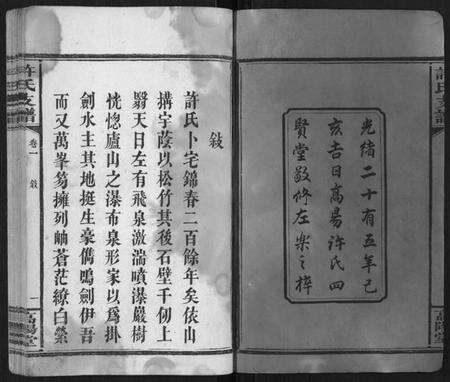 許氏支譜
高陽堂
光緒二十有五年己
亥吉日高昜許氏四
賢堂敬修左樂之梓
敍
許氏卜宅錦春二百餘年矣依山
搆宇蔭以松竹其後石壁千仞上
翳天日左有飛泉激湍噴瀑巖樹
恍惚廬山之瀑布泉形家以爲掛
劍水主其地挺生豪儁鳴劍伊吾
而又萬峯芴擁列岫蒼茫繚白縈
許氏支譜
卷一
敍
一
高陽堂